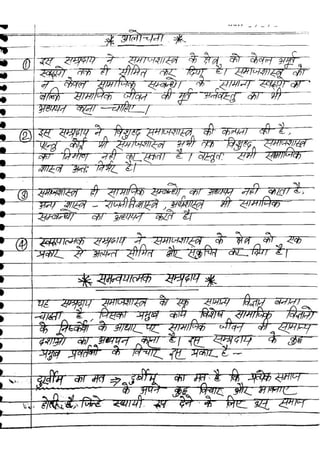 * आलोचना *
① इस सम्प्रदाय ने समाजशास्त्र के क्षेत्र को केवल अमूर्त
स्वरूपों तक ही सीमित कर दिया है। समाजशास्त्र को
न केवल सामाजिक सम्बन्धों के सामान्य स्वरूपों का
बल्कि सामाजिक जीवन की मूर्त अन्तर्वस्तु का भी
अध्ययन करना चाहिए।
② इस सम्प्रदाय ने विशुद्ध समाजशास्त्र की कल्पना की है,
परन्तु कोई भी समाजशास्त्र अभी तक विशुद्ध समाजशास्त्र
का निर्माण नहीं कर सकता है। वस्तुतः सभी सामाजिक
शास्त्र अन्तः निर्भर हैं।
③ समाजशास्त्र ही सामाजिक सम्बन्धों का अध्ययन नहीं करता है,
अन्य शास्त्र - राजनीतिशास्त्र, अर्थशास्त्र भी सामाजिक
सम्बन्धों का अध्ययन करते हैं।
④ स्वरूपात्मक सम्प्रदाय ने समाजशास्त्र के क्षेत्र को एक
प्रकार से अत्यन्त सीमित और संकुचित कर दिया है।
* समन्वयात्मक सम्प्रदाय *
यह सम्प्रदाय समाजशास्त्र को एक सामान्य विज्ञान बनाना
चाहता है जिसका प्रमुख कार्य विशेष सामाजिक विज्ञानों
के निष्कर्षों के आधार पर सामाजिक जीवन की सामान्य
दशाओं का अध्ययन करना है। इस सम्प्रदाय के कुछ
प्रमुख प्रवर्तकों के विचार इस प्रकार हैं --
दुर्खीम का मत → दुर्खीम का मत है कि प्रत्येक समाज
के अपने कुछ विचार और भावनाएं
होती हैं, जिन्हें स्थायी रूप देने के लिए उस समाज